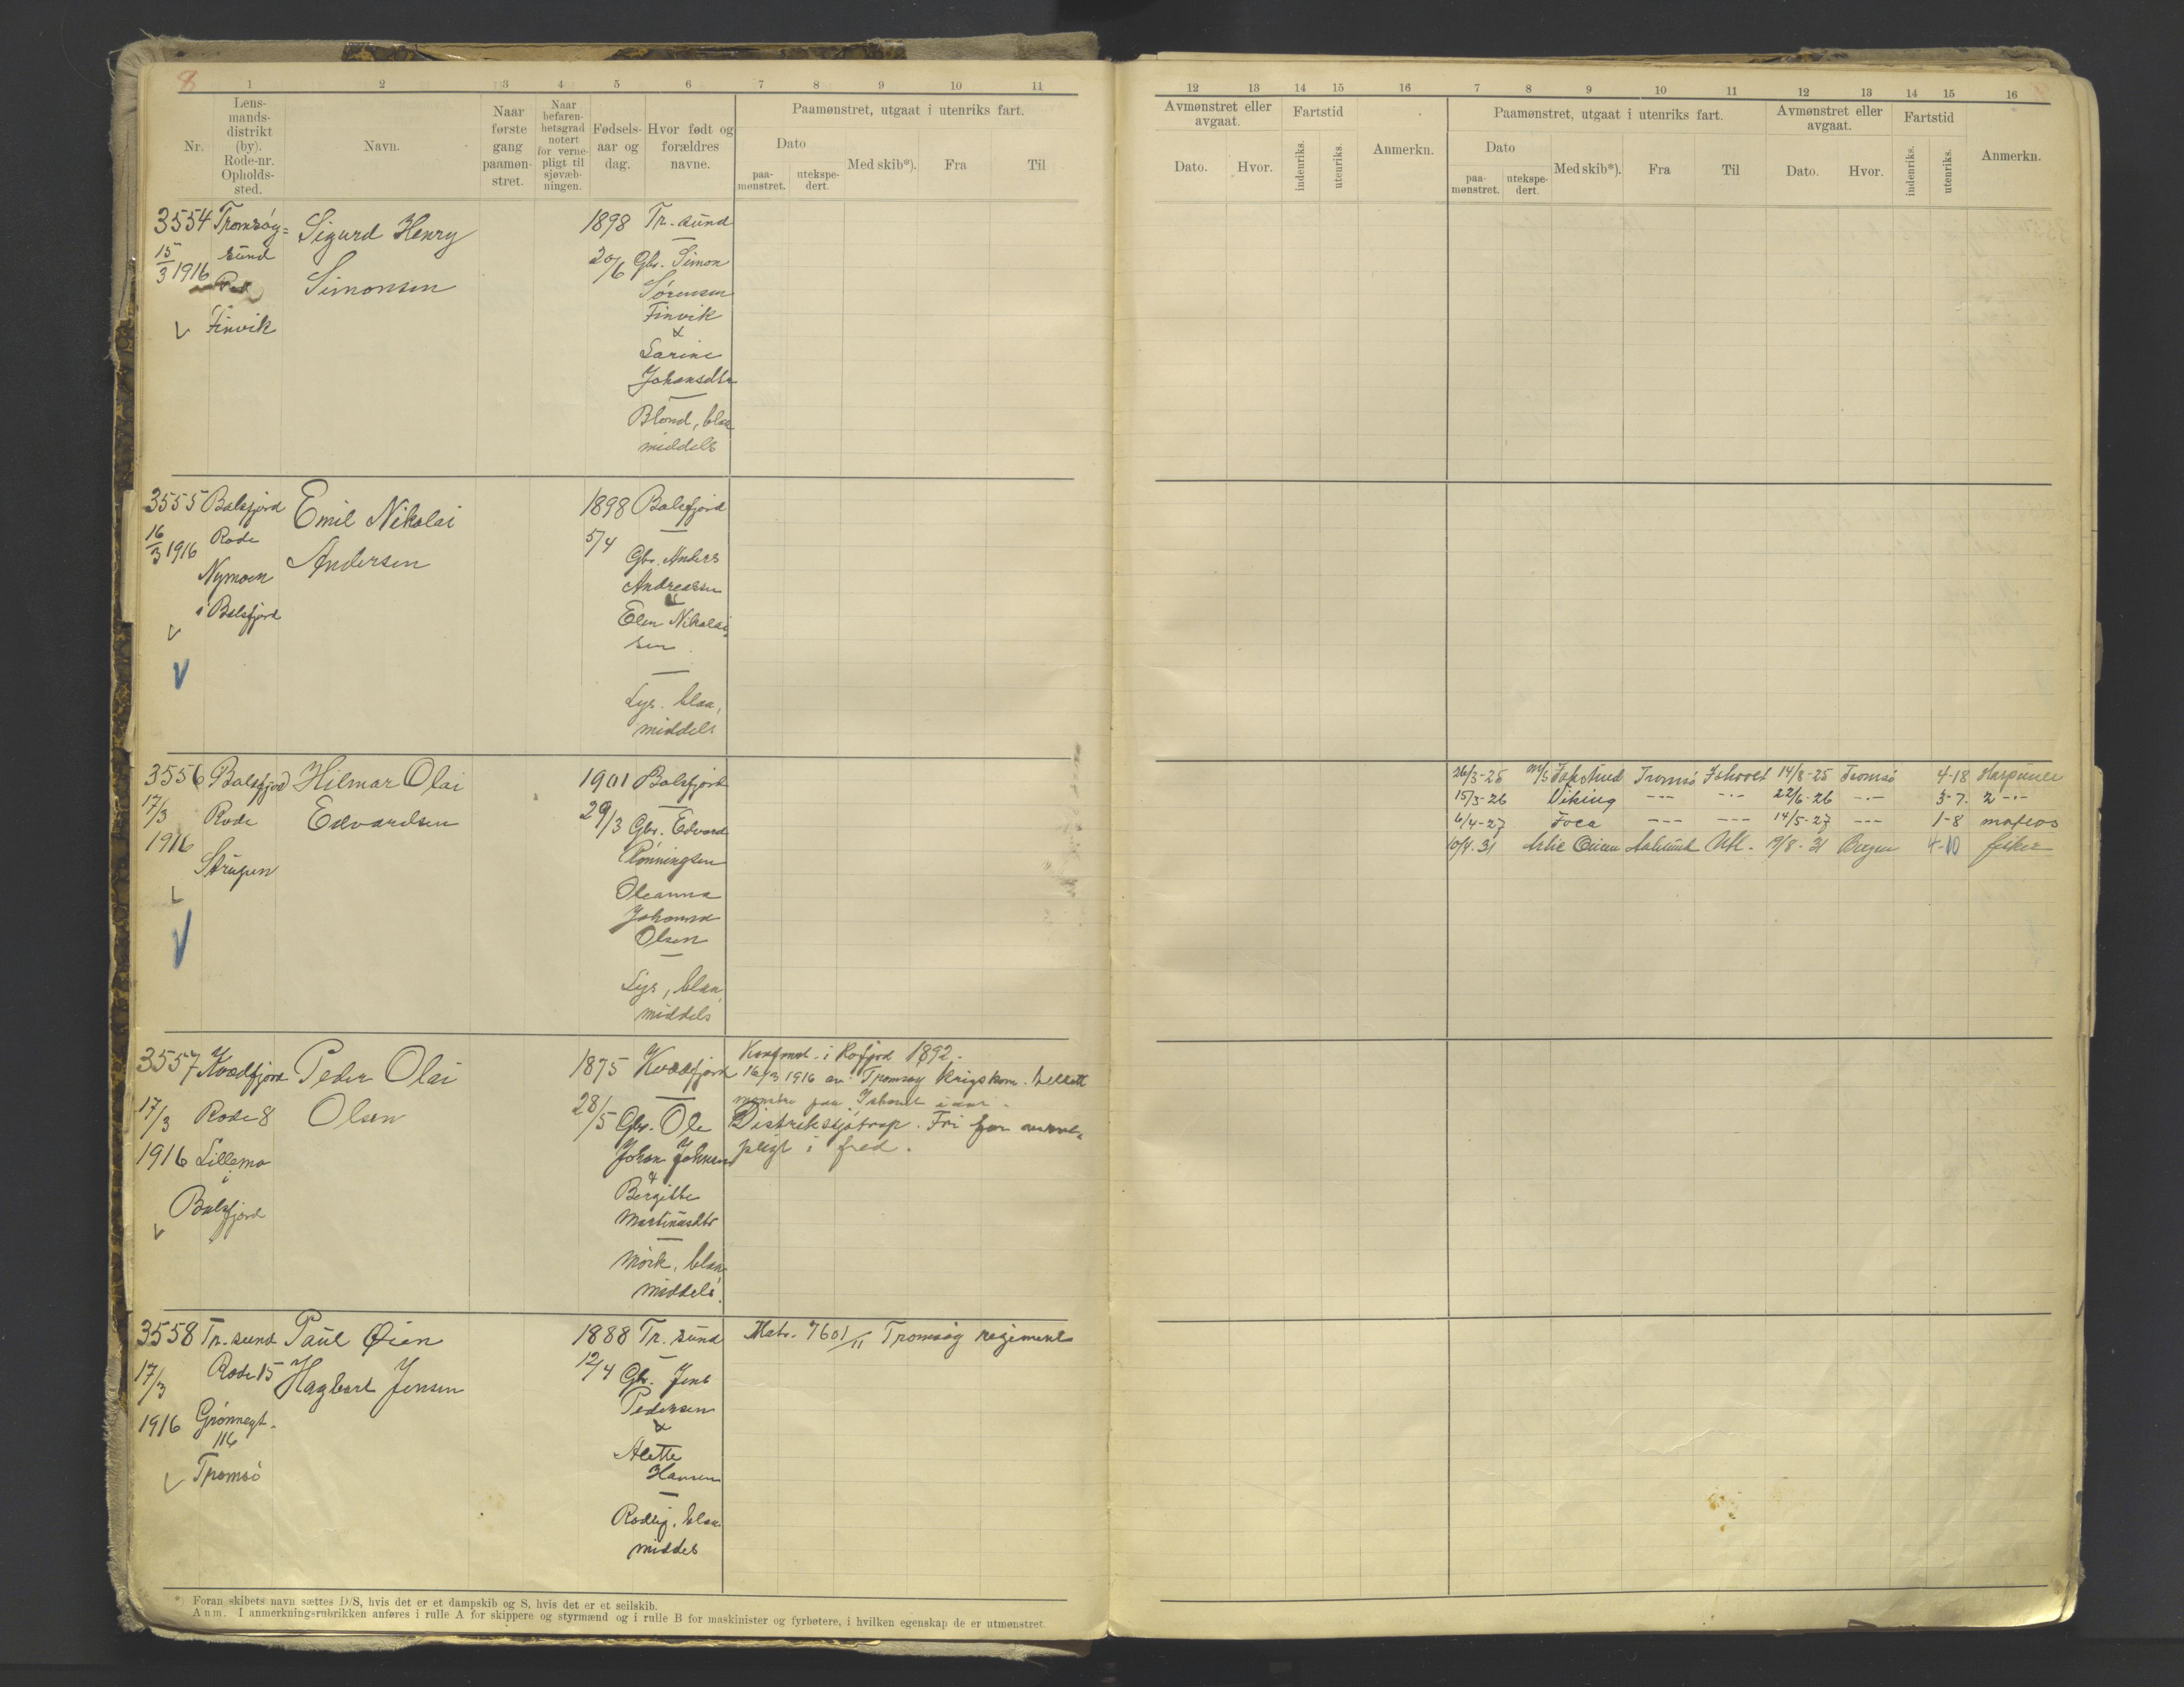 8
1 2 3 4 5 6 7 8 9 10 11
Nr.
Lens-
mands-
distrikt
(by).
Rode-nr.
Opholds-
sted.
Navn.
Naar
første
gang
paamøn-
stret.
Naar
befaren-
hetsgrad
notert
for verne-
pligt til
sjøvæb-
ningen.
Fødsels-
aar og
dag.
Hvor født og
forældres
navne.
Paamønstret, utgaat i utenriks fart.
Dato
paa-
mønstret.
utekspe-
dert.
Med skib*).
Fra
Til
3554 Tromsøy=
sund
15/3 1916
Finvik
Sigurd Henry
Simonsen
1898
20/6
Tr. sund
Gbr. Simon
Sørensen
Finvik
&
Larine
Johansdtr
Blond, blaa
middels
3555 Balsfjord
16/3 1916
Rode
Nymoen
i Balsfjord
Emil Nikolai
Andersen
1898
5/4
Balsfjord
Gbr. Anders
Andreassen
&
Elen Nikolai
sen
Lys. blaa,
middels
3556 Balsfjord
17/3
1916
Rode
Strupen
Hilmar Olai
Edvardsen
1901
29/3
Balsfjord
Gbr. Edvard
Rønningsen
Oleanna
Johanna
Olsen
Lys, blaa,
middels
3557 Kvædfjord
17/3
1916
Rode 8
Lillemo
i
Balsfjord
Peder Olai
Olsen
1875
28/5
Kvædfjord
Gbr. Ole
Johan Johnsen
&
Bergitte
Martinusdtr
Mörk, blaa,
middels.
Konfmd. i Kofjord 1892.
16/3 1916 av Tromsøy Krigskom. tillatt
mønstre paa Ishavet i aar.
Distriktssjötrop. Fri for verne-
pligt i fred.
3558 Tr. sund
17/3
1916
Rode 15
Grønnegt.
116
Tromsö
Paul Øien
Hagbart Jensen
1888
12/4
Tr. sund
Gbr. Jens
Pedersen
&
Alette
Hansen
Rødlig, blaa.
middels
Matr. 7601/11 Tromsøy regiment
*) Foran skibets navn sættes D/S, hvis det er et dampskib og S, hvis det er et seilskib.
Anm. I anmerkningsrubrikken anføres i rulle A for skippere og styrmænd og i rulle B for maskinister og fyrbøtere, i hvilken egenskap de er utmønstret.
12 13 14 15 16 7 8 9 10 11 12 13 14 15 16
Avmønstret eller
avgaat.
Dato.
Hvor.
Fartstid
indenriks.
utenriks.
Anmerkn.
Paamønstret, utgaat i utenriks fart.
Dato
paa-
mønstret.
utekspe-
dert.
Med skib*).
Fra
Til
Avmønstret eller
avgaat.
Dato.
Hvor.
Fartstid
indenriks.
utenriks.
Anmerkn.
26/3-25 M/S Tromsö Ishavet 14/8-25 Tromsö 4-18 Harpuner
15/3-26 Viking -"- -"- 22/6-26 -"- 3-7. 2 -"-
6/4-27 Foca --- --- 14/5-27 --- 1-8 matros
10/4.31 Aalesund 19/8-31 Bergen 4-10 fisker